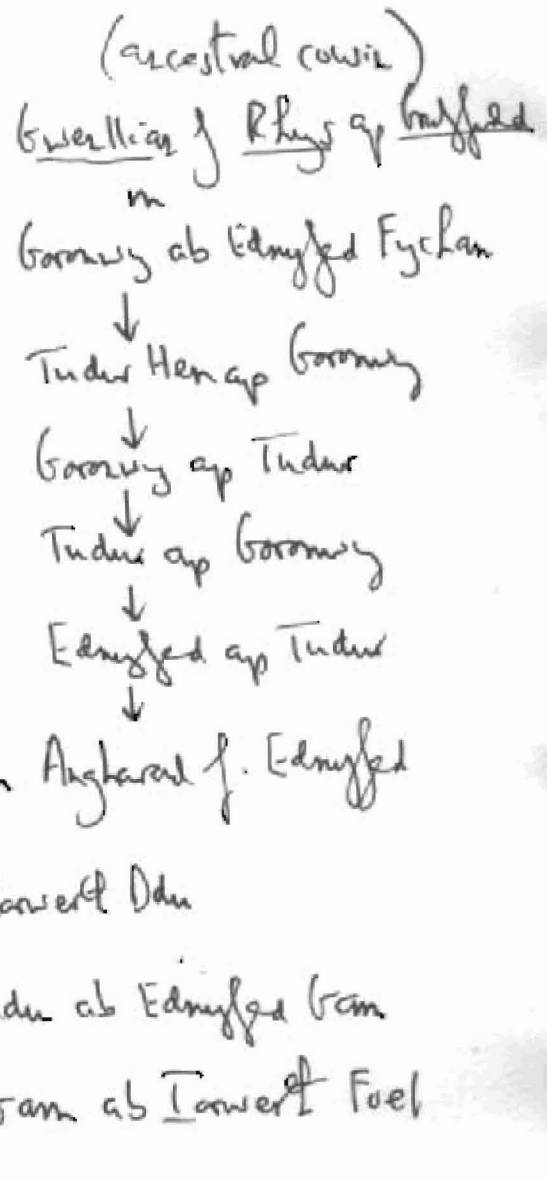 (ancestral cousin)
Gwenllian f Rhys ap Gruffydd
m
Goronwy ab Ednyfed Fychan
↓
Tudur Hen ap Goronwy
↓
Goronwy ap Tudur
↓
Tudur ap Goronwy
↓
Ednyfed ap Tudur
↓
Angharad f. Ednyfed
Ddu
ab Ednyfed Gam
ab Iorwerth Foel